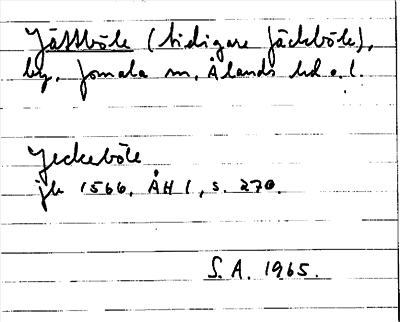 Jättböle (tidigare Jäckböle),
by, Jomala sn, Ålands hd o. l.
Jeckeböle
jb 1566, ÅH 1, s. 270.
S. A. 1965.